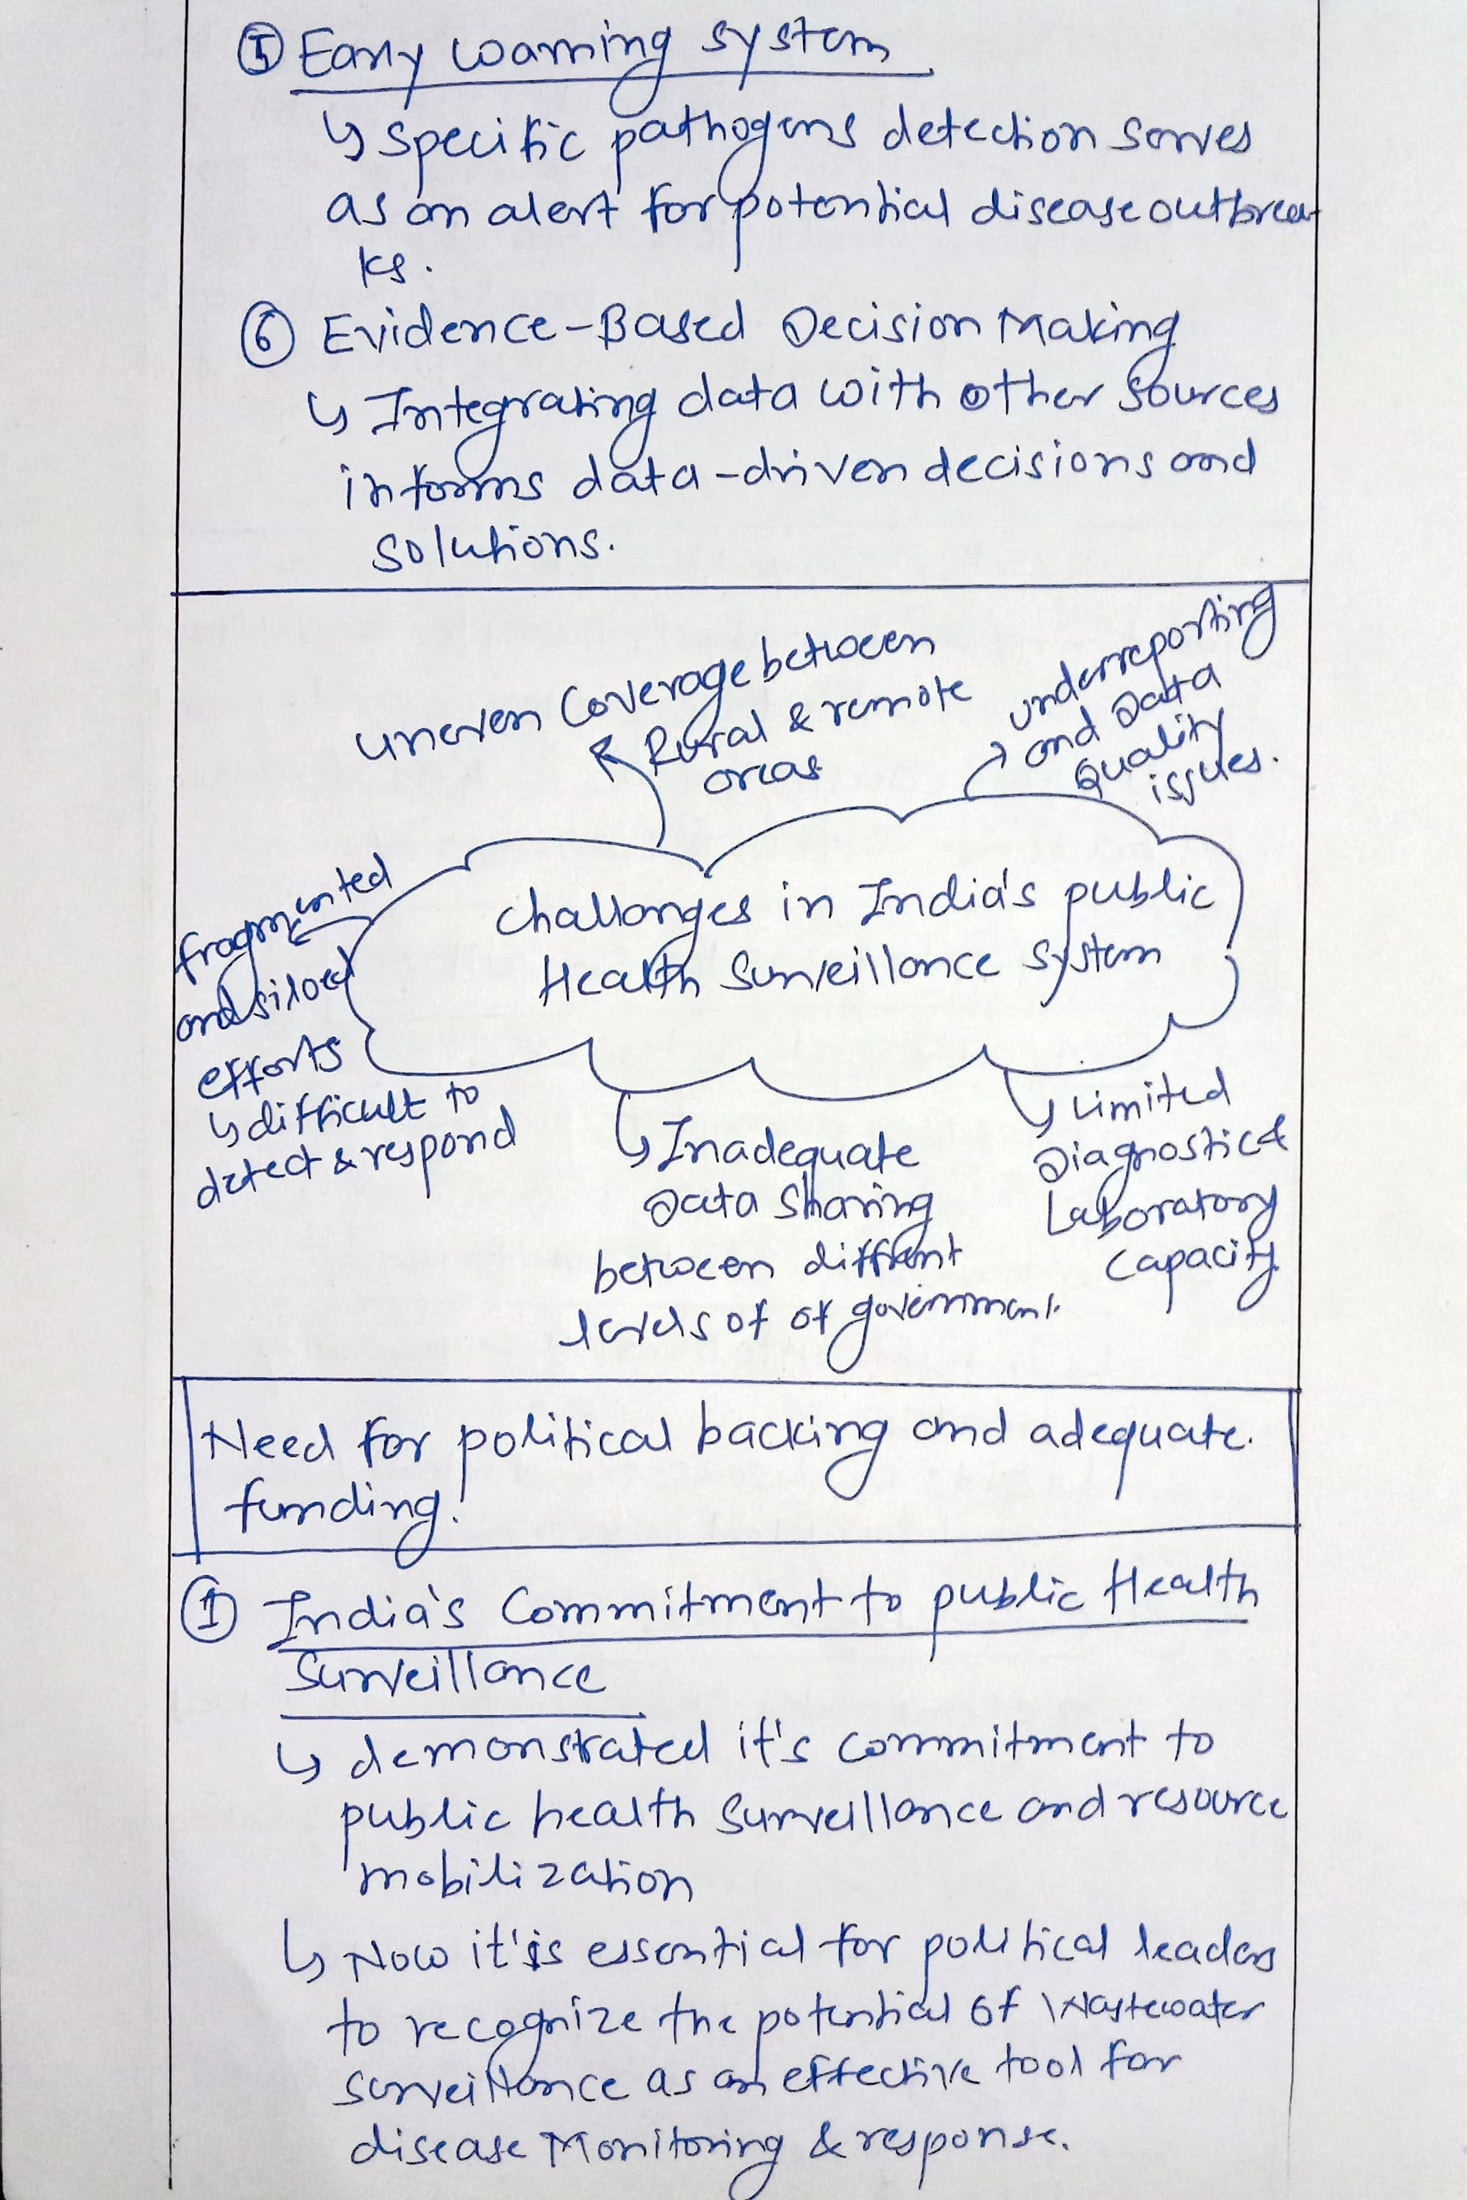 ⑤ Early warning system
↳ specific pathogens detection serves
as an alert for potential disease outbrea
ks.
⑥ Evidence-Based Decision Making
↳ Integrating data with other sources
informs data-driven decisions and
solutions.
uneven coverage between
Rural & remote
areas
underreporting
and Data
Quality
issues.
fragmented
and siloed
efforts
↳ difficult to
detect & respond
challenges in India's public
Health Surveillance system
↳ Inadequate
Data Sharing
between diffrent
levels of of government.
↳ Limited
Diagnostic &
Laboratory
capacity
Need for political backing and adequate.
funding.
① India's Commitment to public Health
Surveillance
↳ demonstrated it's commitment to
public health Surveillance and resource
mobilization
↳ Now it'is essential for political leaders
to recognize the potential of Wastewater
surveillance as an effective tool for
disease Monitoring & response.